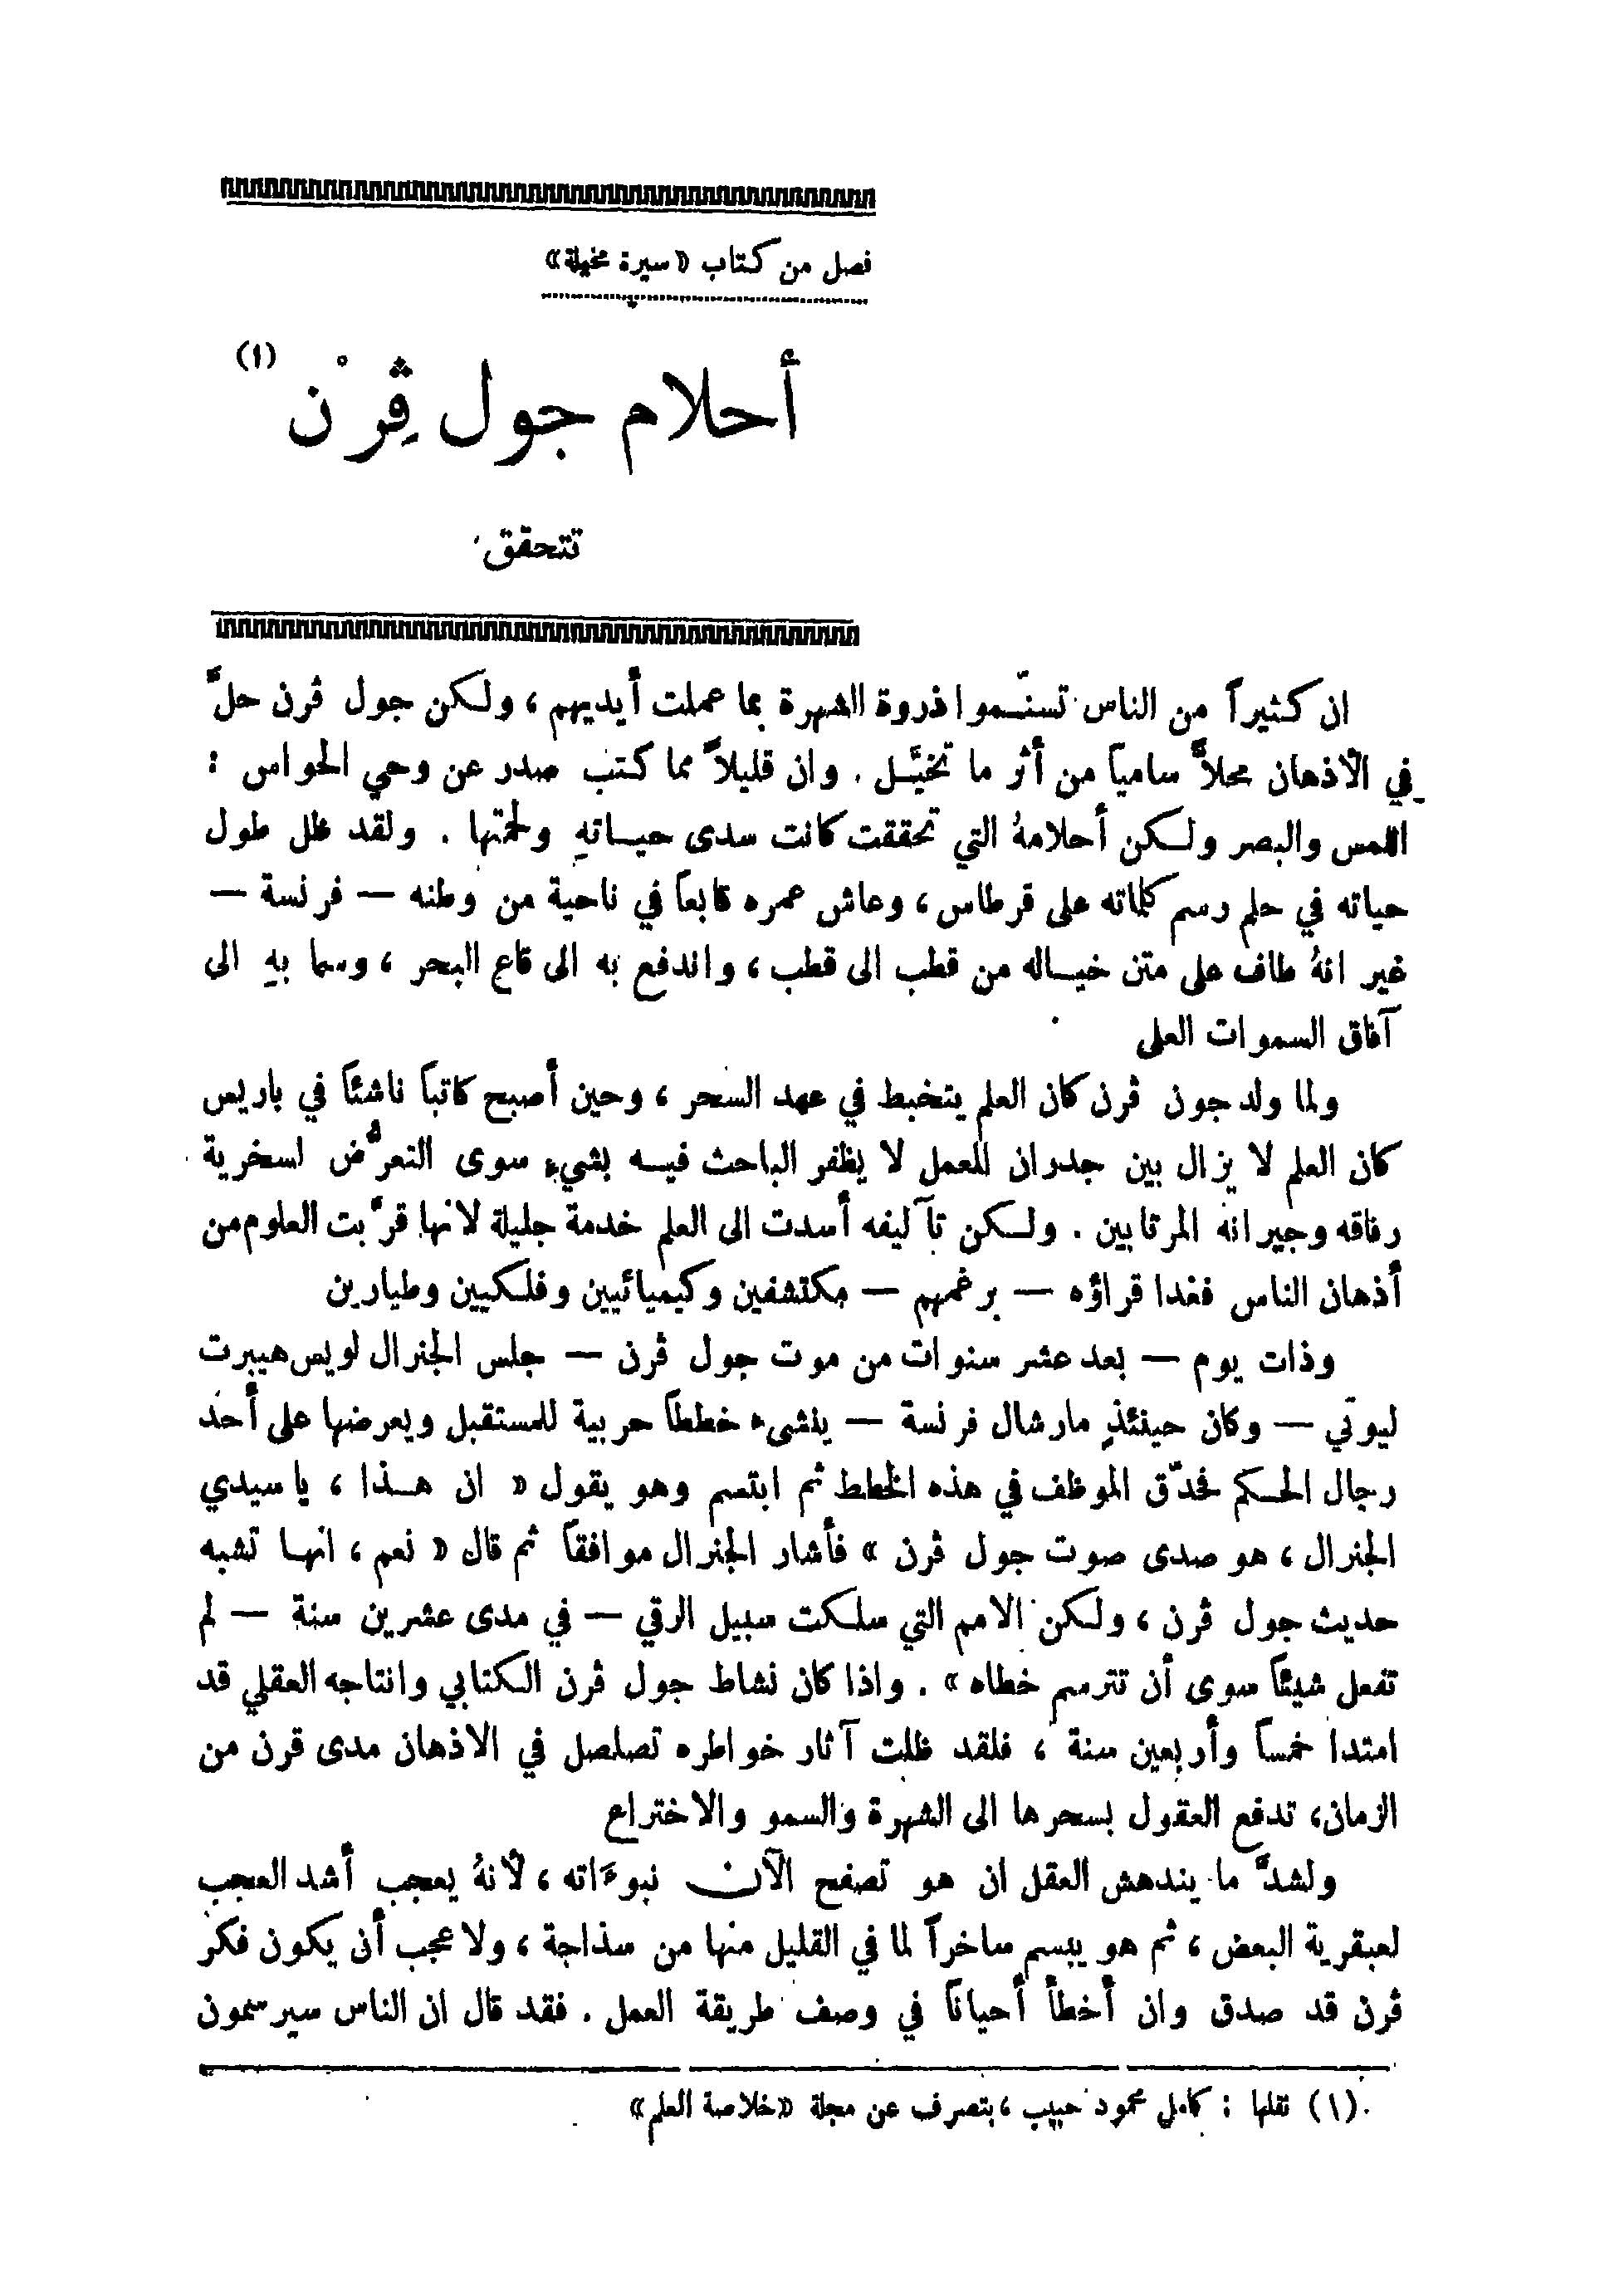 فصل من كتاب «سيرة مخيلة»
أحلام جول ڤِرْن (١)
تتحقق
ان كثيراً من الناس تسنّموا ذروة الشهرة بما عملت أيديهم ، ولكن جول ڤرن حلَّ
في الأذهان محلاًّ سامياً من أثر ما تخيَّل . وان قليلاً مما كتب صدر عن وحي الحواس :
اللمس والبصر ولكن أحلامهُ التي تحققت كانت سدى حياتهِ ولحمتها . ولقد ظل طول
حياته في حلم رسم كلماته على قرطاس ، وعاش عمره قابعاً في ناحية من وطنه — فرنسة —
غير انهُ طاف على متن خياله من قطب الى قطب ، واندفع به الى قاع البحر ، وسما بهِ الى
آفاق السموات العلى
ولما ولد جون ڤرن كان العلم يتخبط في عهد السحر ، وحين أصبح كاتباً ناشئاً في باريس
كان العلم لا يزال بين جدران المعمل لا يظفر الباحث فيه بشيء سوى التعرُّض لسخرية
رفاقه وجيرانه المرتابين . ولكن تآليفه أسدت الى العلم خدمة جليلة لانها قرَّبت العلوم من
أذهان الناس فغدا قراؤه — برغمهم — مكتشفين وكيميائيين وفلكيين وطيارين
وذات يوم — بعد عشر سنوات من موت جول ڤرن — جلس الجنرال لويس هيبرت
ليوتي — وكان حينئذٍ مارشال فرنسة — ينشىء خططاً حربية للمستقبل ويعرضها على أحد
رجال الحكم فحدّق الموظف في هذه الخطط ثم ابتسم وهو يقول « ان هذا ، يا سيدي
الجنرال ، هو صدى صوت جول ڤرن » فأشار الجنرال موافقاً ثم قال « نعم ، انها تشبه
حديث جول ڤرن ، ولكن الامم التي سلكت سبيل الرقي — في مدى عشرين سنة — لم
تفعل شيئاً سوى أن تترسم خطاه » . واذا كان نشاط جول ڤرن الكتابي وانتاجه العقلي قد
امتدا خمساً وأربعين سنة ، فلقد ظلت آثار خواطره تصلصل في الاذهان مدى قرن من
الزمان، تدفع العقول بسحرها الى الشهرة والسمو والاختراع
ولشدَّ ما يندهش العقل ان هو تصفح الآن نبوءاته ، لأنهُ يعجب أشد العجب
لعبقرية البعض ، ثم هو يبسم ساخراً لما في القليل منها من سذاجة ، ولا عجب أن يكون فكر
ڤرن قد صدق وان أخطأ أحياناً في وصف طريقة العمل . فقد قال ان الناس سيرسمون
(١) نقلها : كامل محمود حبيب ، بتصرف عن مجلة «خلاصة العلم»